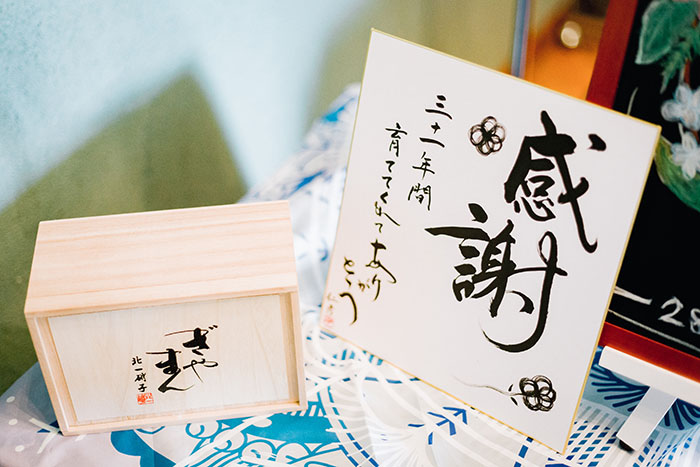 感謝
三十一年間
育ててくれてあり
がとう
ぎや
まん
北一硝子
28